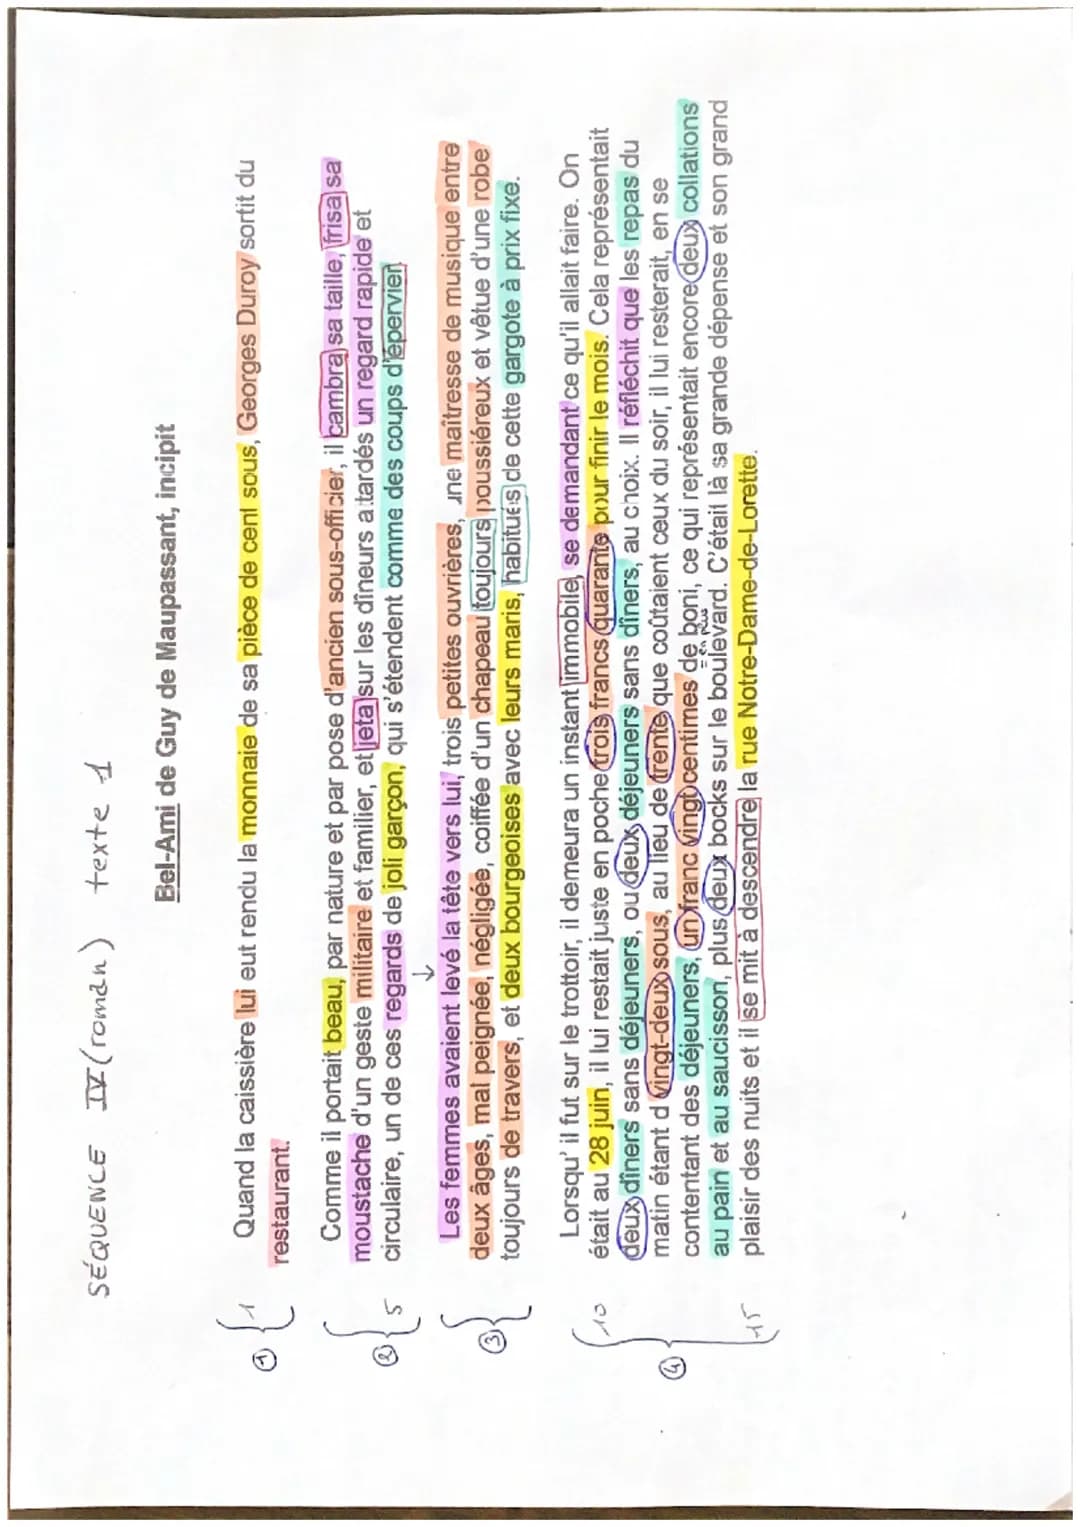 SÉQUENCE IV (roman) texte 1
Bel-Ami de Guy de Maupassant, incipit
① 1 Quand la caissière lui eut rendu la monnaie de sa pièce de cent sous, Georges Duroy sortit du
restaurant.
Comme il portait beau, par nature et par pose d'ancien sous-officier, il cambra sa taille, frisa sa
② moustache d'un geste militaire et familier, et jeta sur les dîneurs attardés un regard rapide et
5 circulaire, un de ces regards de joli garçon, qui s'étendent comme des coups d'épervier.
↓
Les femmes avaient levé la tête vers lui, trois petites ouvrières, une maîtresse de musique entre
③ deux âges, mal peignée, négligée, coiffée d'un chapeau toujours poussiéreux et vêtue d'une robe
toujours de travers, et deux bourgeoises avec leurs maris, habitués de cette gargote à prix fixe.
Lorsqu' il fut sur le trottoir, il demeura un instant immobile, se demandant ce qu'il allait faire. On
10 était au 28 juin, il lui restait juste en poche trois francs quarante pour finir le mois. Cela représentait
deux dîners sans déjeuners, ou deux déjeuners sans dîners, au choix. Il réfléchit que les repas du
④ matin étant d vingt-deux sous, au lieu de trente que coûtaient ceux du soir, il lui resterait, en se
contentant des déjeuners, un franc vingt centimes de boni, ce qui représentait encore deux collations
= en plus
au pain et au saucisson, plus deux bocks sur le boulevard. C'était là sa grande dépense et son grand
15 plaisir des nuits et il se mit à descendre la rue Notre-Dame-de-Lorette.